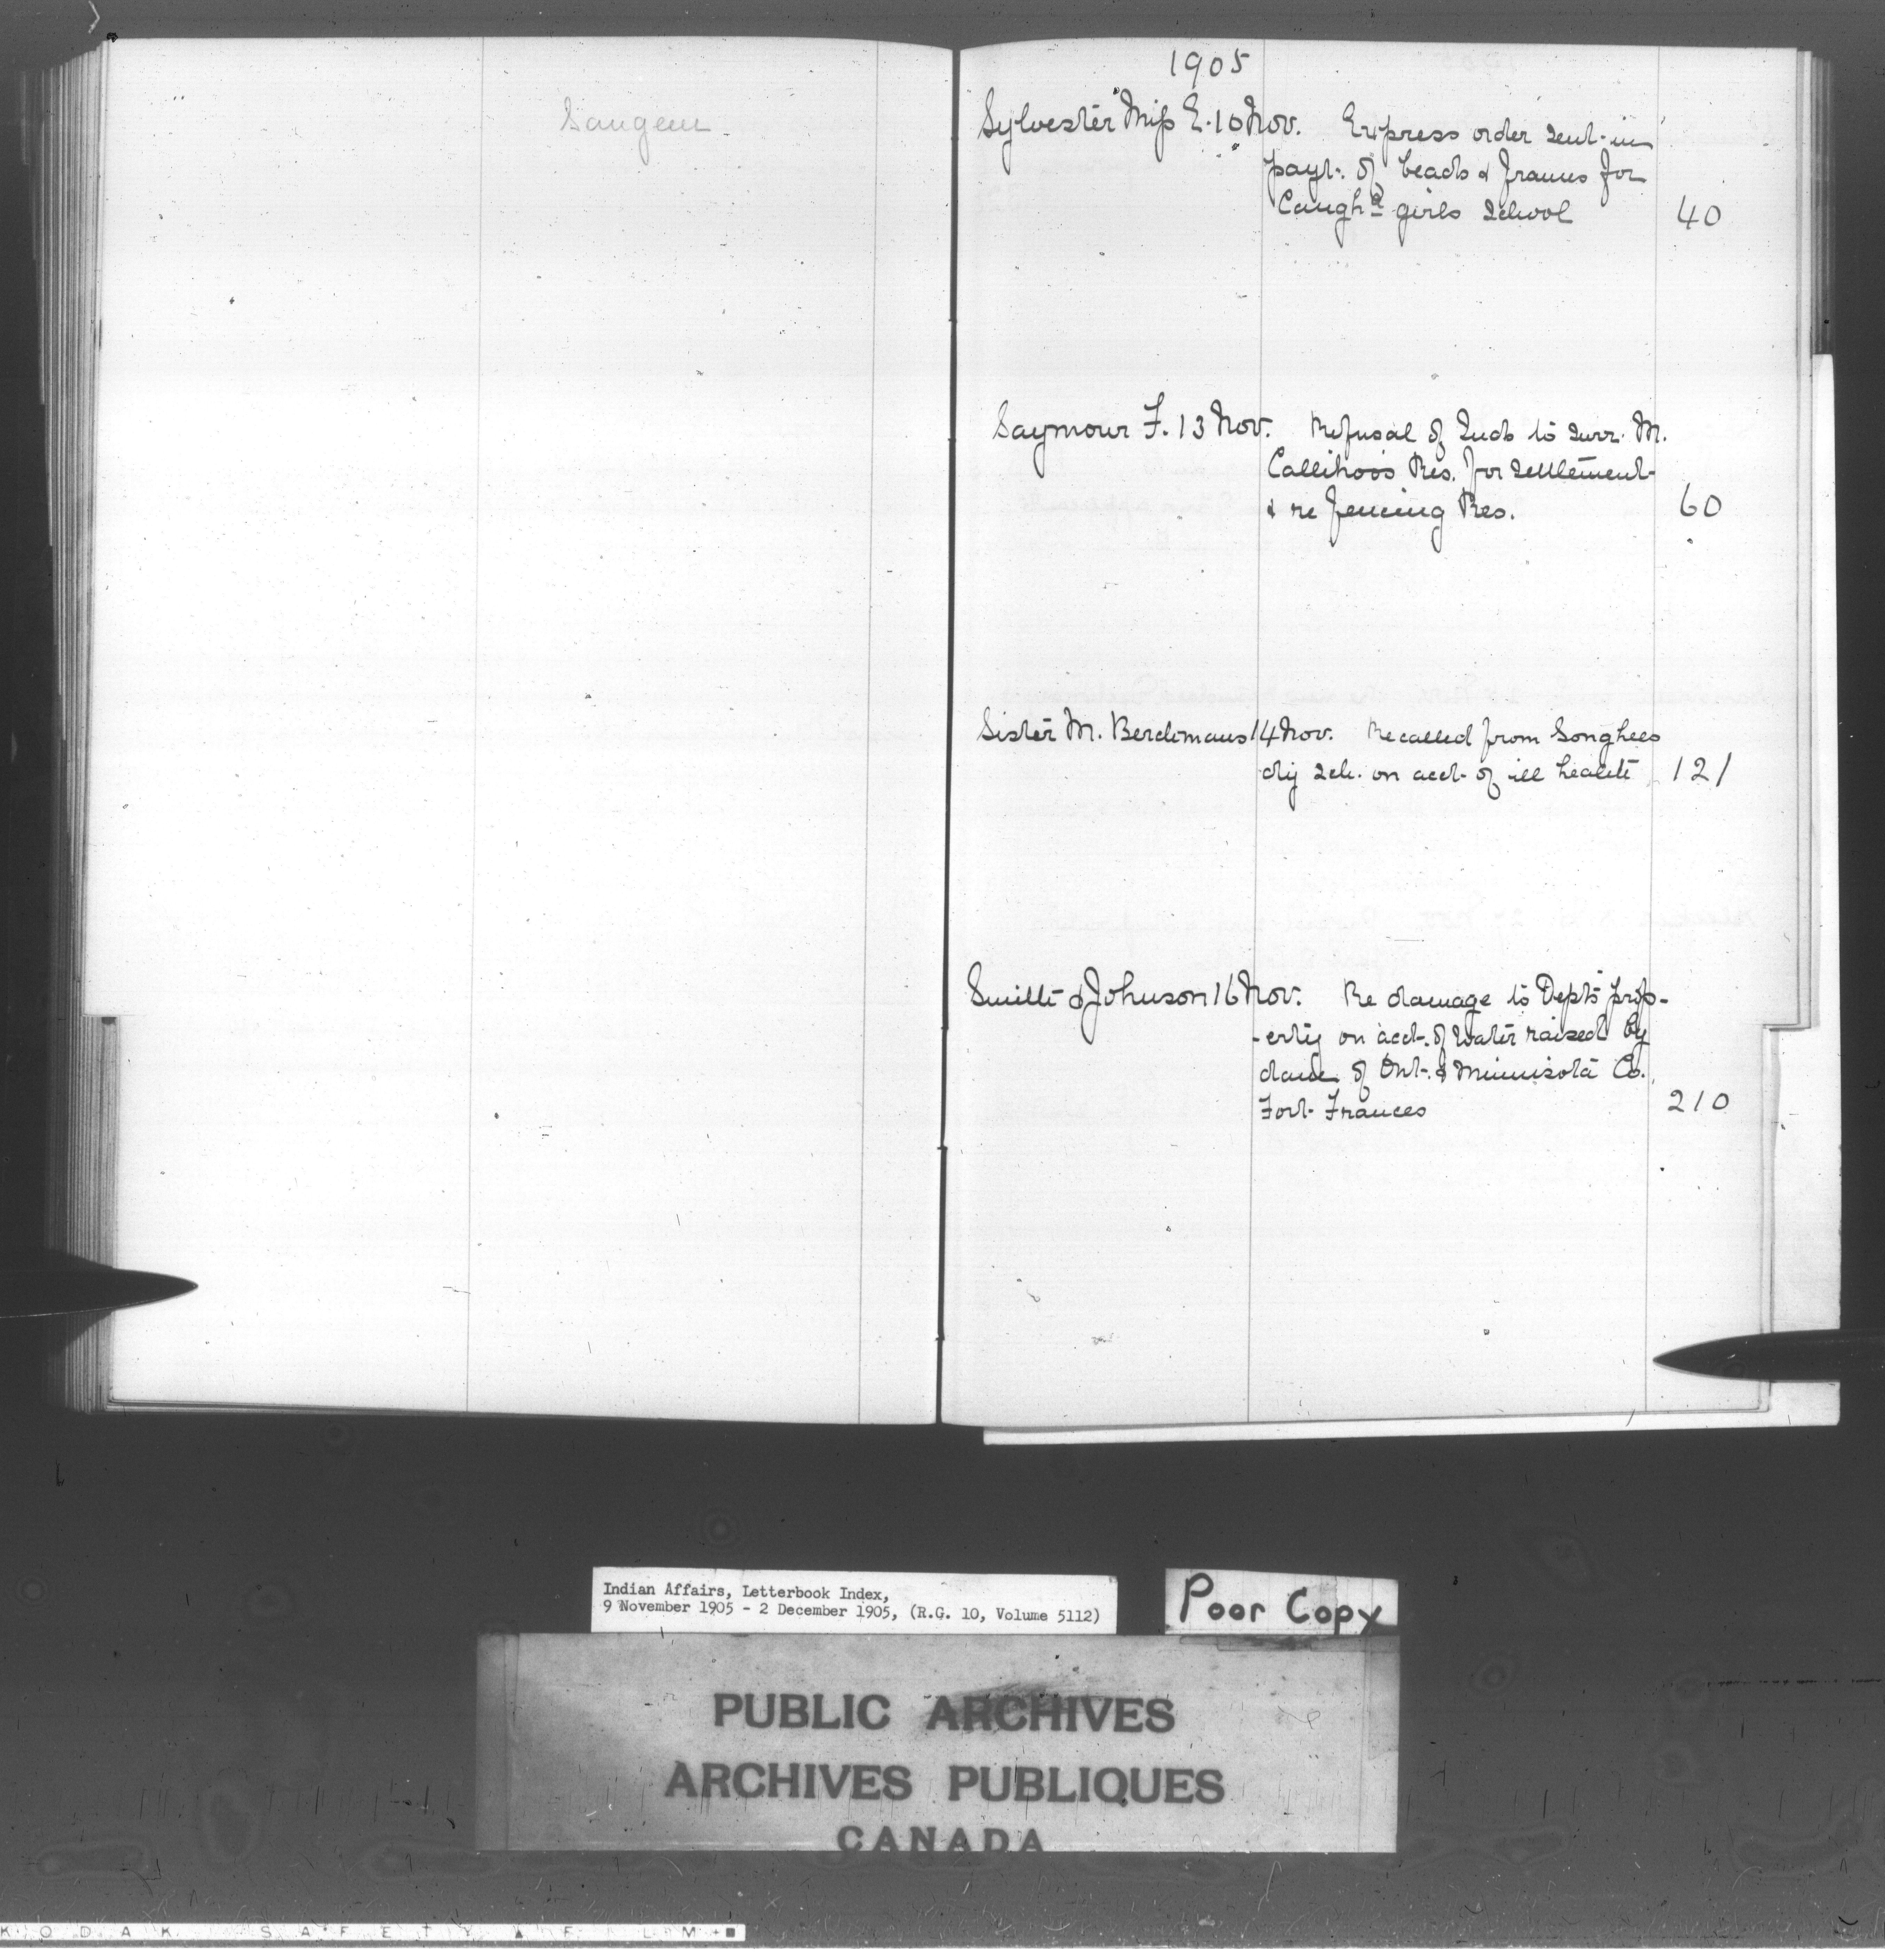 Saugeen
1905
Sylvester Miss E. 10 Nov. Express order sent in
payt. of beads & frames for
Caugha girls School 40
Saymour F. 13 Nov. Refusal of Inds to surr. M.
Callihoo's Res. for settlement
& re fencing Res. 60
Sister M. Berchmans 14 Nov. Recalled from Songhees
dy sch. on acct. of ill health 121
Smith & Johnson 16 Nov. Re damage to Depts prop-
-erty on acct. of water raised by
dam of Ont. & Minnisota Co.
Fort Frances 210
Indian Affairs, Letterbook Index,
9 November 1905 - 2 December 1905, (R.G. 10, Volume 5112)
Poor Copy
PUBLIC ARCHIVES
ARCHIVES PUBLIQUES
CANADA
KODAK SAFETY FILM